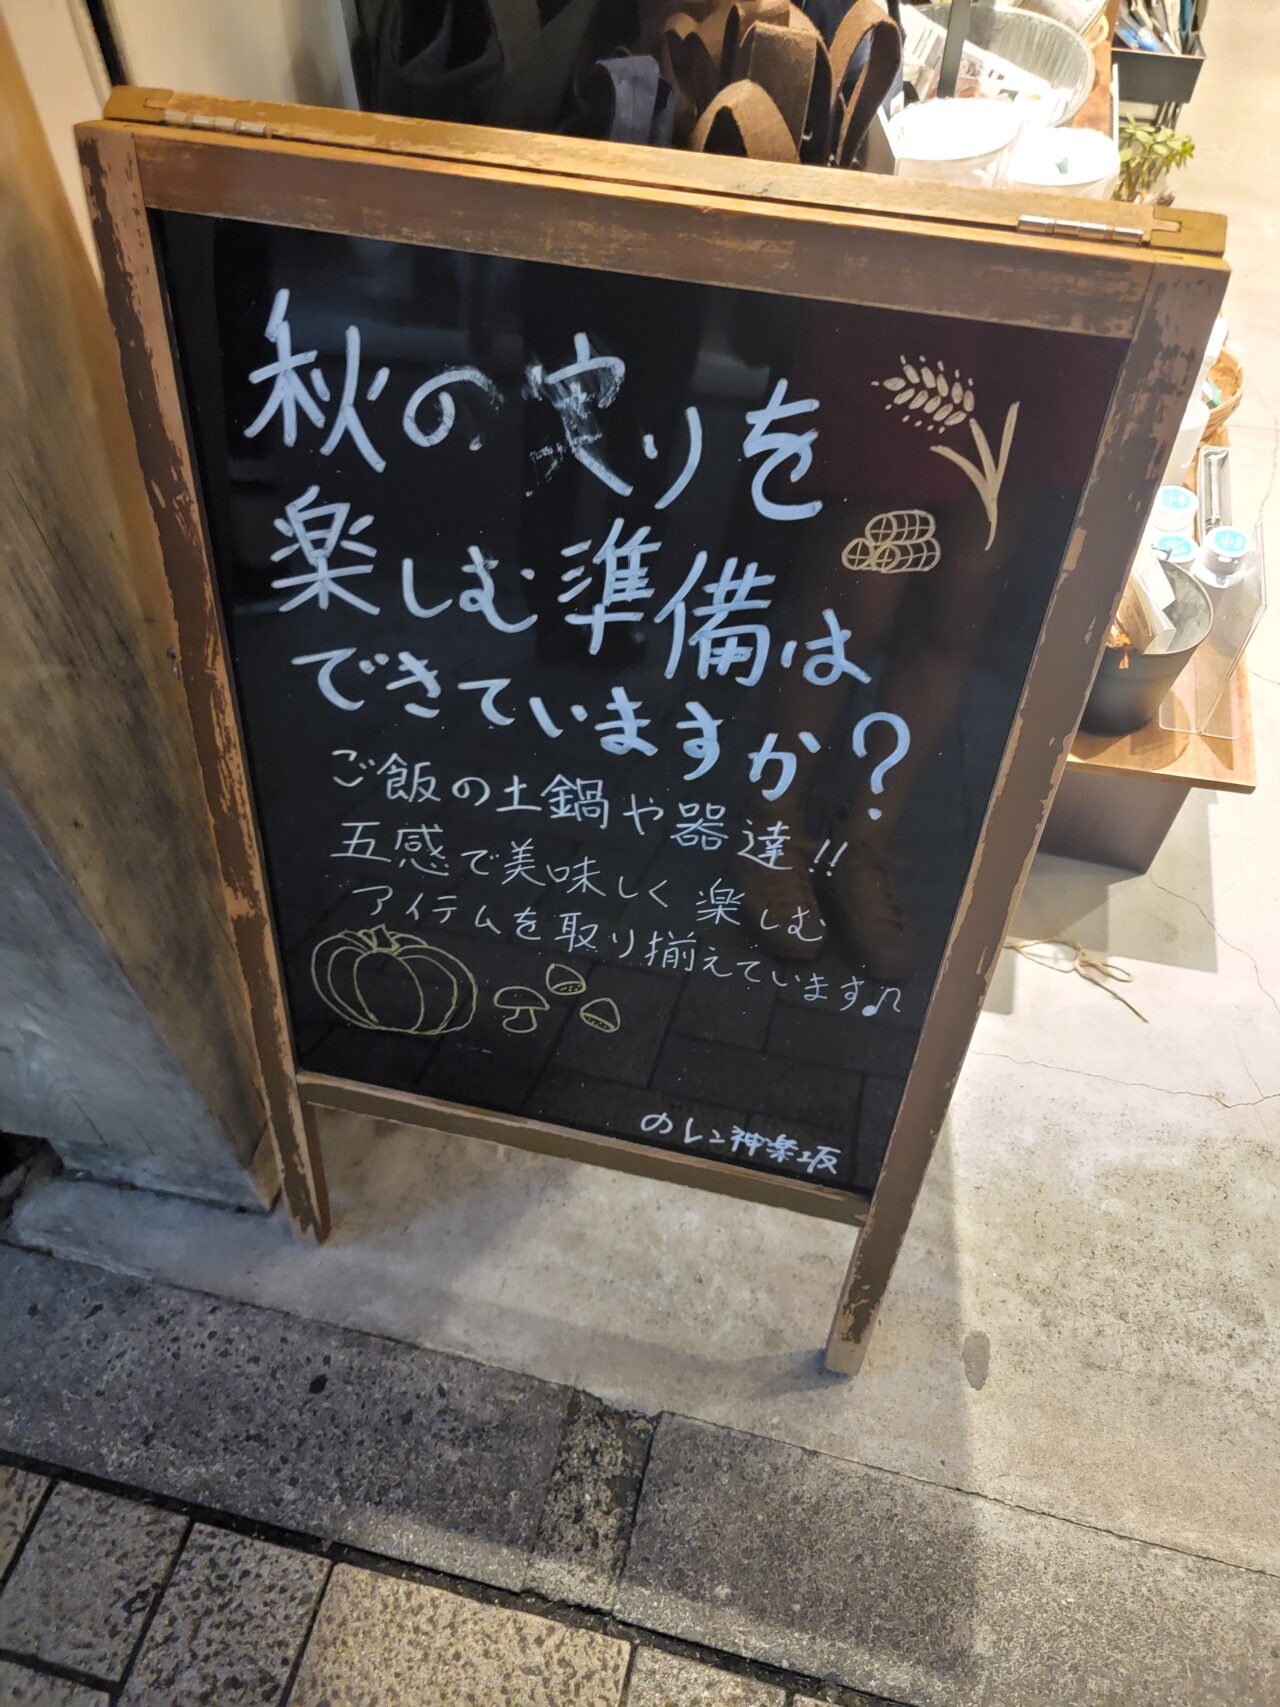 秋の実りを
楽しむ準備は
できていますか?
ご飯の土鍋や器達!!
五感で美味しく楽しむ
アイテムを取り揃えています♫
のレン神楽坂